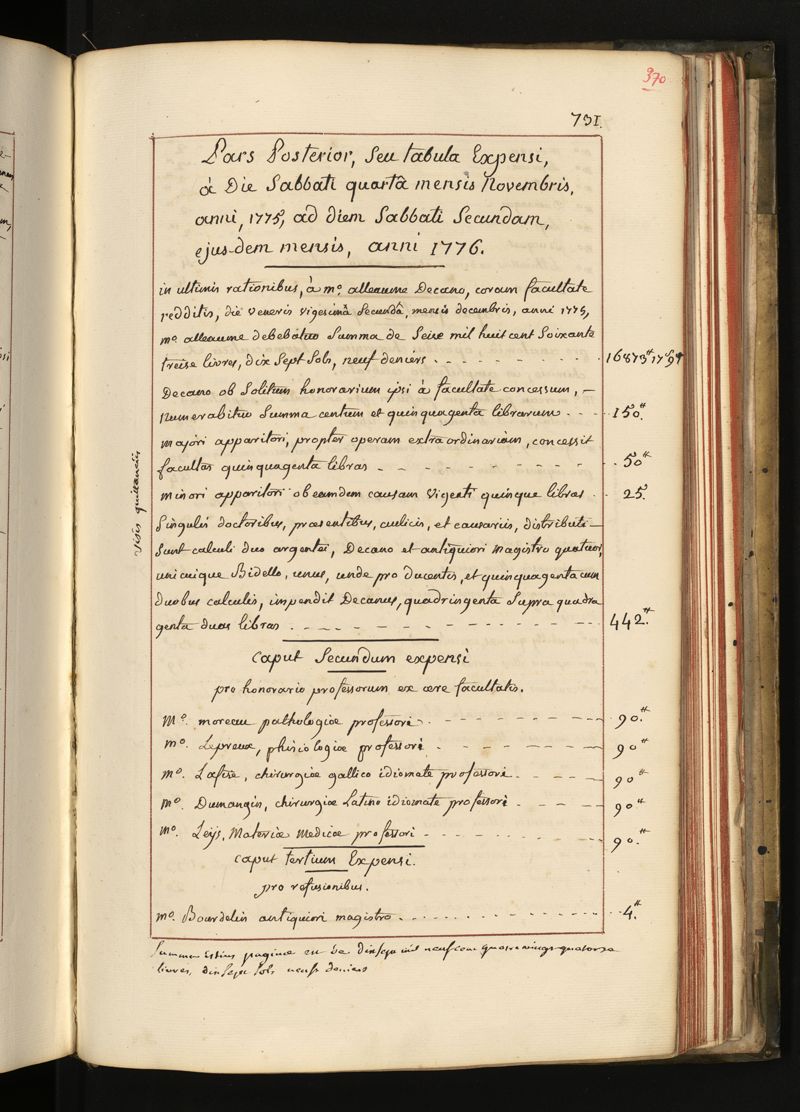 370
731.
Pars Posterior, Seu tabula Expensi,
à Die Sabbati quartâ mensis Novembris,
anni, 1775, ad diem Sabbati Secundam,
ejus-dem mensis, anni 1776.
in ultimis rationibus, à m.o alleaume Decano, coram facultate
redditis, die veneris vigesimâ Secundâ, mensis decembris, anni 1775,
m.o alleaume debebatur Summa de Seise mil huit cent Soixante
treise livres, dix Sept Sols, neuf deniers - - - - - - - - - 16873# 17s 9d
Decano ob Solitum honorarium ipsi à facultate concessum, -
numerabitur Summa centum et quinquagenta librarum - - - 150.#
majori apparitori, propter operam extraordinariam, concessit
facultas quinquagenta libras - - - - - - - - - - 50#
minori apparitori ob eamdem causam vigenti quinque libras - - 25.
Singulis doctoribus, præsentibus, aulicis, et causariis, distributi
Sunt calculi duo argentei, Decano et antiquiori magistro quatuor,
unicuique Bidello, unus, unde pro ducentis, et quinquagenta cum
duobus calculis, impendit Decanus, quadringenta Supra quadra
genta duas libras - - - - - - - - - - - - 442.#
visis quittanciis
Caput Secundum expensi
pro honorario professorum ex ære facultatis.
M.o moreau pathologiæ professori - - - - - - - - - 90.#
m.o Lepreux, phisiologiæ professori - - - - - - - - 90#
m.o Lafise, chirurgiæ gallico idiomate professori - - - - - 90#
m.o Dumangin, chirurgiæ Latino idiomate professori - - - - 90#
m.o Leys, Materiæ Medicæ professori - - - - - - - - - 90.#
caput tertium Expensi.
pro refusionibus.
m.o Bourdelin antiquiori magistro - - - - - - - - - - - 4.#
Summa istius paginæ dixsept mil neuf cent quatrevingt quatorze
livres, dixsept Sols neuf deniers